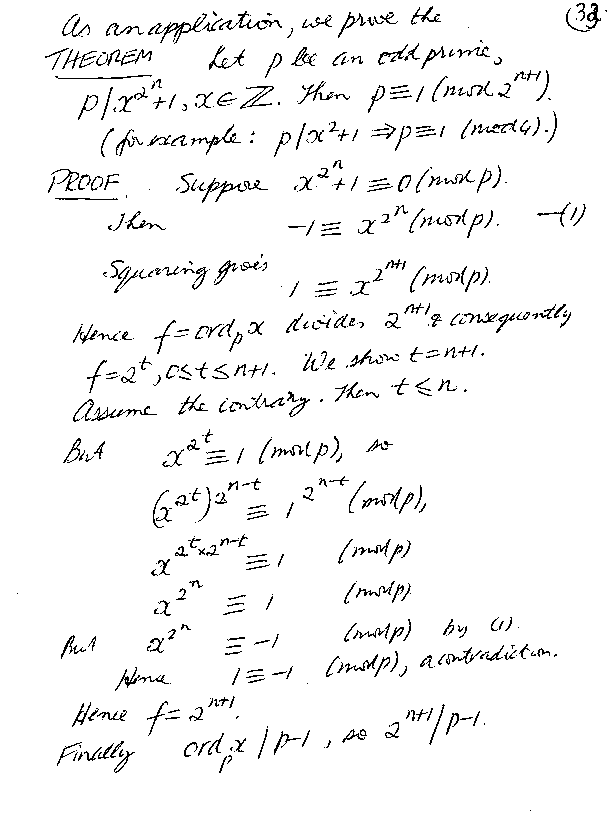 As an application, we prove the
THEOREM Let p be an odd prime,
p | x^{2^n}+1, x ∈ Z. Then p ≡ 1 (mod 2^{n+1}).
(for example: p | x^2+1 ⇒ p ≡ 1 (mod 4).)
PROOF. Suppose x^{2^n}+1 ≡ 0 (mod p).
Then -1 ≡ x^{2^n} (mod p). —(1)
Squaring gives
1 ≡ x^{2^{n+1}} (mod p).
Hence f = ord_p x divides 2^{n+1} & consequently
f = 2^t, 0 ≤ t ≤ n+1. We show t = n+1.
Assume the contrary. Then t ≤ n.
But x^{2^t} ≡ 1 (mod p), so
(x^{2^t})^{2^{n-t}} ≡ 1^{2^{n-t}} (mod p),
x^{2^t × 2^{n-t}} ≡ 1 (mod p)
x^{2^n} ≡ 1 (mod p)
But x^{2^n} ≡ -1 (mod p) by (1).
Hence 1 ≡ -1 (mod p), a contradiction.
Hence f = 2^{n+1}.
Finally ord_p x | p-1, so 2^{n+1} | p-1.